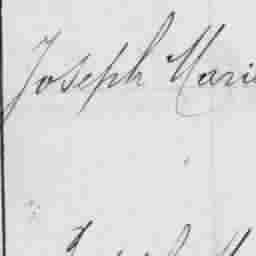 Joseph Marie